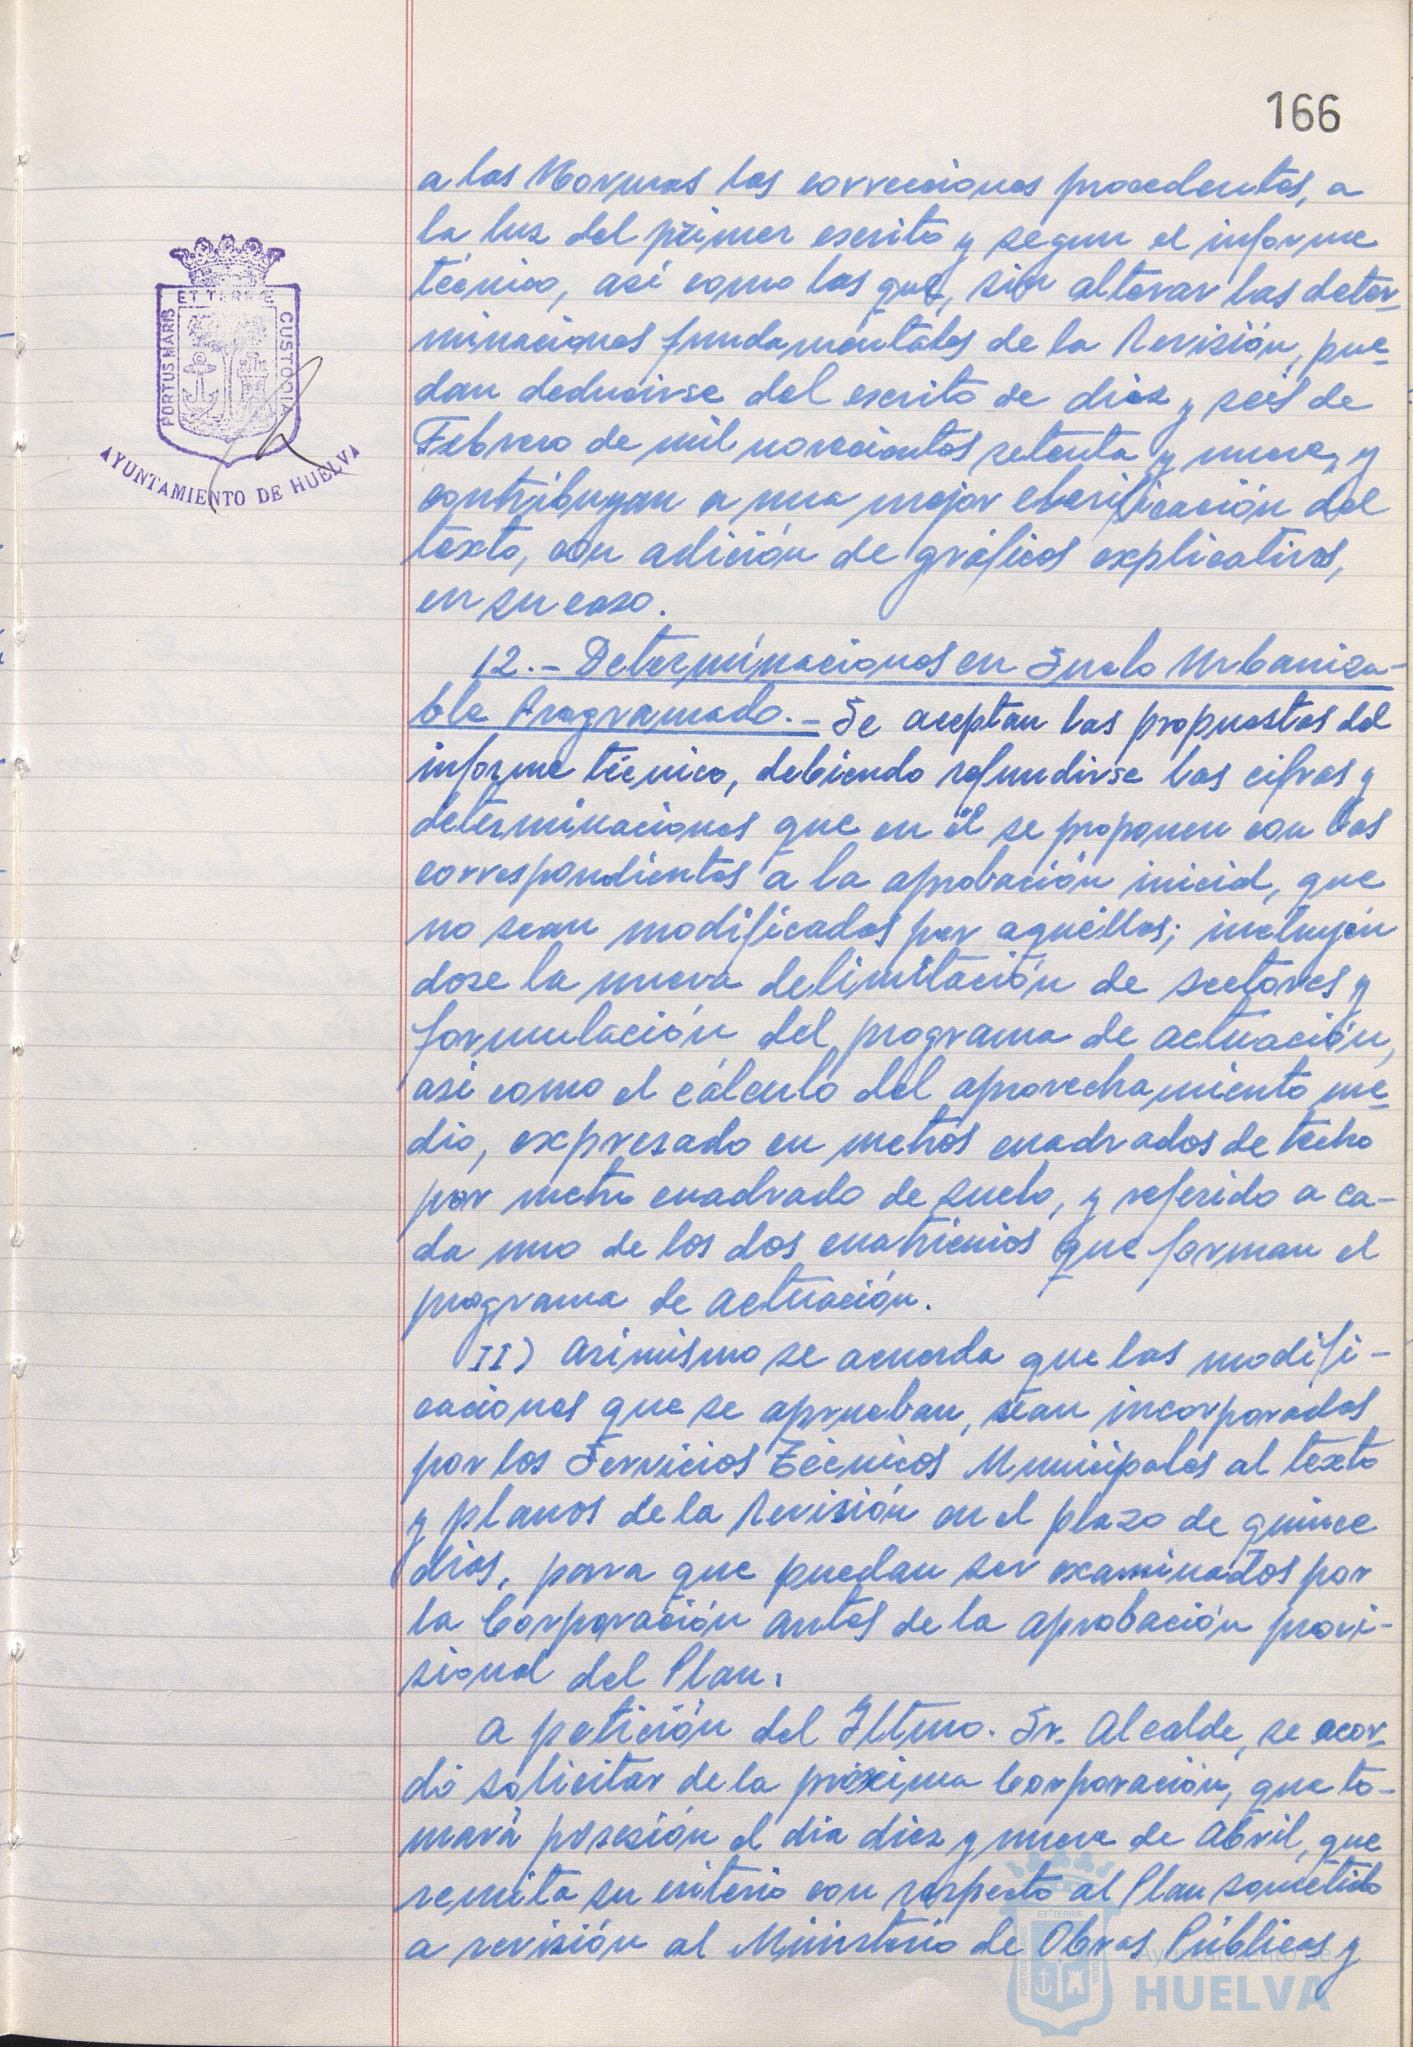 166
a las Normas las correcciones procedentes, a
la luz del primer escrito y segun el informe
técnico, así como las que, sin alterar las deter-
minaciones fundamentales de la Revisión, pue-
dan deducirse del escrito de diez y seis de
Febrero de mil novecientos setenta y nueve, y
contribuyan a una mejor clarificación del
texto, con adición de gráficos explicativos,
en su caso.
12.- Determinaciones en Suelo Urbaniza-
ble Programado.- Se aceptan las propuestas del
informe técnico, debiendo refundirse las cifras y
determinaciones que en él se proponen con las
correspondientes a la aprobación inicial, que
no sean modificadas por aquéllas; incluyén
dose la nueva delimitación de sectores y
formulación del programa de actuación,
asi como el cálculo del aprovechamiento me-
dio, expresado en metros cuadrados de techo
por metro cuadrado de suelo, y referido a ca-
da uno de los dos cuatrienios que forman el
programa de actuación.
II) Asimismo se acuerda que las modifi-
caciones que se aprueban, sean incorporadas
por los Servicios Técnicos Municipales al texto
y planos de la Revisión en el plazo de quince
dias, para que puedan ser examinados por
la Corporación antes de la aprobación provi-
sional del Plan.
A petición del Iltmo. Sr. Alcalde, se acor-
dó solicitar de la próxima Corporación, que to-
mará posesión el dia diez y nueve de Abril, que
remita su criterio con respecto al Plan sometido
a revisión al Ministerio de Obras Públicas y
PORTUS MARIS
ET TERRÆ
CUSTODIA
AYUNTAMIENTO DE HUELVA
PORTUS MARIS
ET TERRÆ
CUSTODIA
Ayuntamiento de
HUELVA